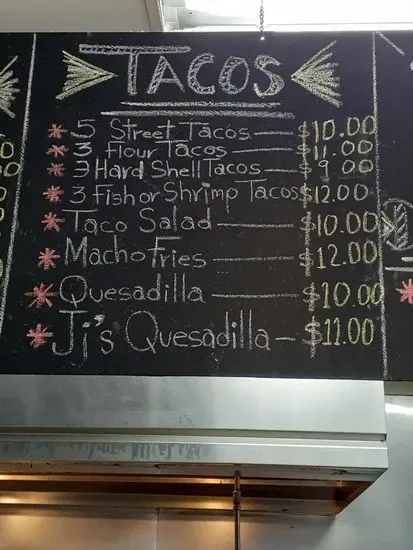 TACOS
* 5 Street Tacos — $10.00
* 3 flour Tacos — $11.00
* 3 Hard Shell Tacos — $9.00
* 3 Fish or Shrimp Tacos $12.00
* Taco Salad — $10.00
* Macho Fries — $12.00
* Quesadilla — $10.00
* Ji's Quesadilla — $11.00